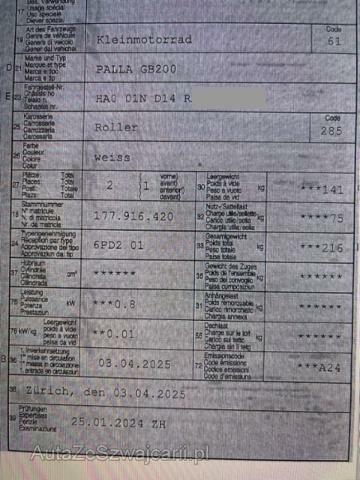 Usage spécial
Uso speciale
17
Art des Fahrzeugs
Genre de véhicule
Genere di veicolo
Code
19
Kleinmotorrad
61
D 21
Marke und Typ
Marque et type
Marca e tipo
PALLA GB200
E 23
Fahrgestell-Nr.
Châssis no
Telaio n.
HA0 01N D14 R
25
Karosserie
Carrosserie
Carrozzeria
Code
Roller
285
26
Farbe
Couleur
Colore
Colur
weiss
27
Total
Places: Total
Posti: Totale
Plazs: Total
2
(1
vorne)
avant)
anteriori)
davant)
30
Leergewicht
Poids à vide
Peso a vuoto
Paisa da vid
kg
***141
18
Stammnummer
N° matricule
N. di matricola
Nr. da matricla
177.916.420
32
Nutz-/Sattellast
Charge utile/sellette
Carico utile/sella
kg
****75
24
Typengenehmigung
Réception par type
Approvazione del tipo
6PD2 01
33
Gesamtgewicht
Poids total
Peso totale
Paisa totala
kg
***216
37
Hubraum
Cylindrée
Cilindrata
cm³
******
35
Gewicht des Zuges
Poids de l'ensemble
Peso del convoglio
kg
******
76
Leistung
Puissance
Potenza
Prestaziun
kW
***0.8
31
Anhängelast
Poids remorquable
Carico rimorchiabile
Chargia annexa
kg
******
78 kW/kg
Leergewicht
poids à vide
peso a vuoto
paisa da vid
**0.01
55
Dachlast
Charge sur le toit
Carico sul tetto
kg
******
B 36
1. Inverkehrsetzung
1re mise en circulation
1. messa in circolazione
03.04.2025
72
Emissionscode
Code émissions
Codice emissioni
Code d'emissiuns
***A24
38
Zürich, den 03.04.2025
39
Prüfungen
Expertises
Perizie
Examinaziuns
25.01.2024 ZH
AutaZeSzwajcarii.pl